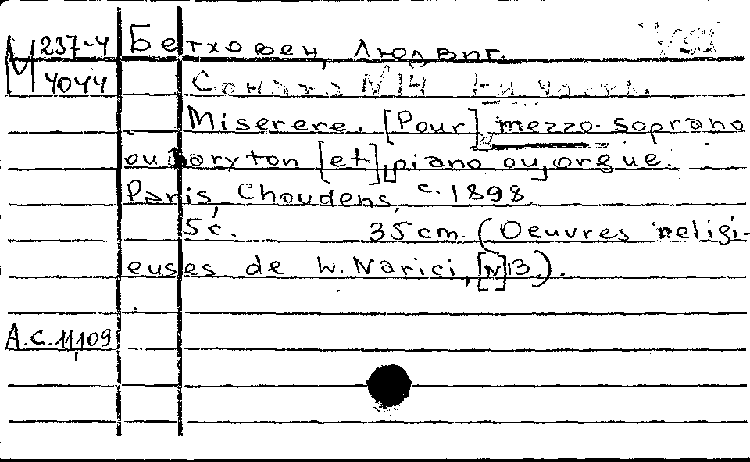 М 237-4 Бетховен, Людвиг.
4044 Соната N14 1-я часть.
Miserere. [Pour] mezzo-soprano
ou baryton [et] piano ou orgue.
Paris, Choudens, c. 1898.
5 с. 35 cm. (Oeuvres religi-
euses de L. Narici, [N]13.).
A.C. 11,109